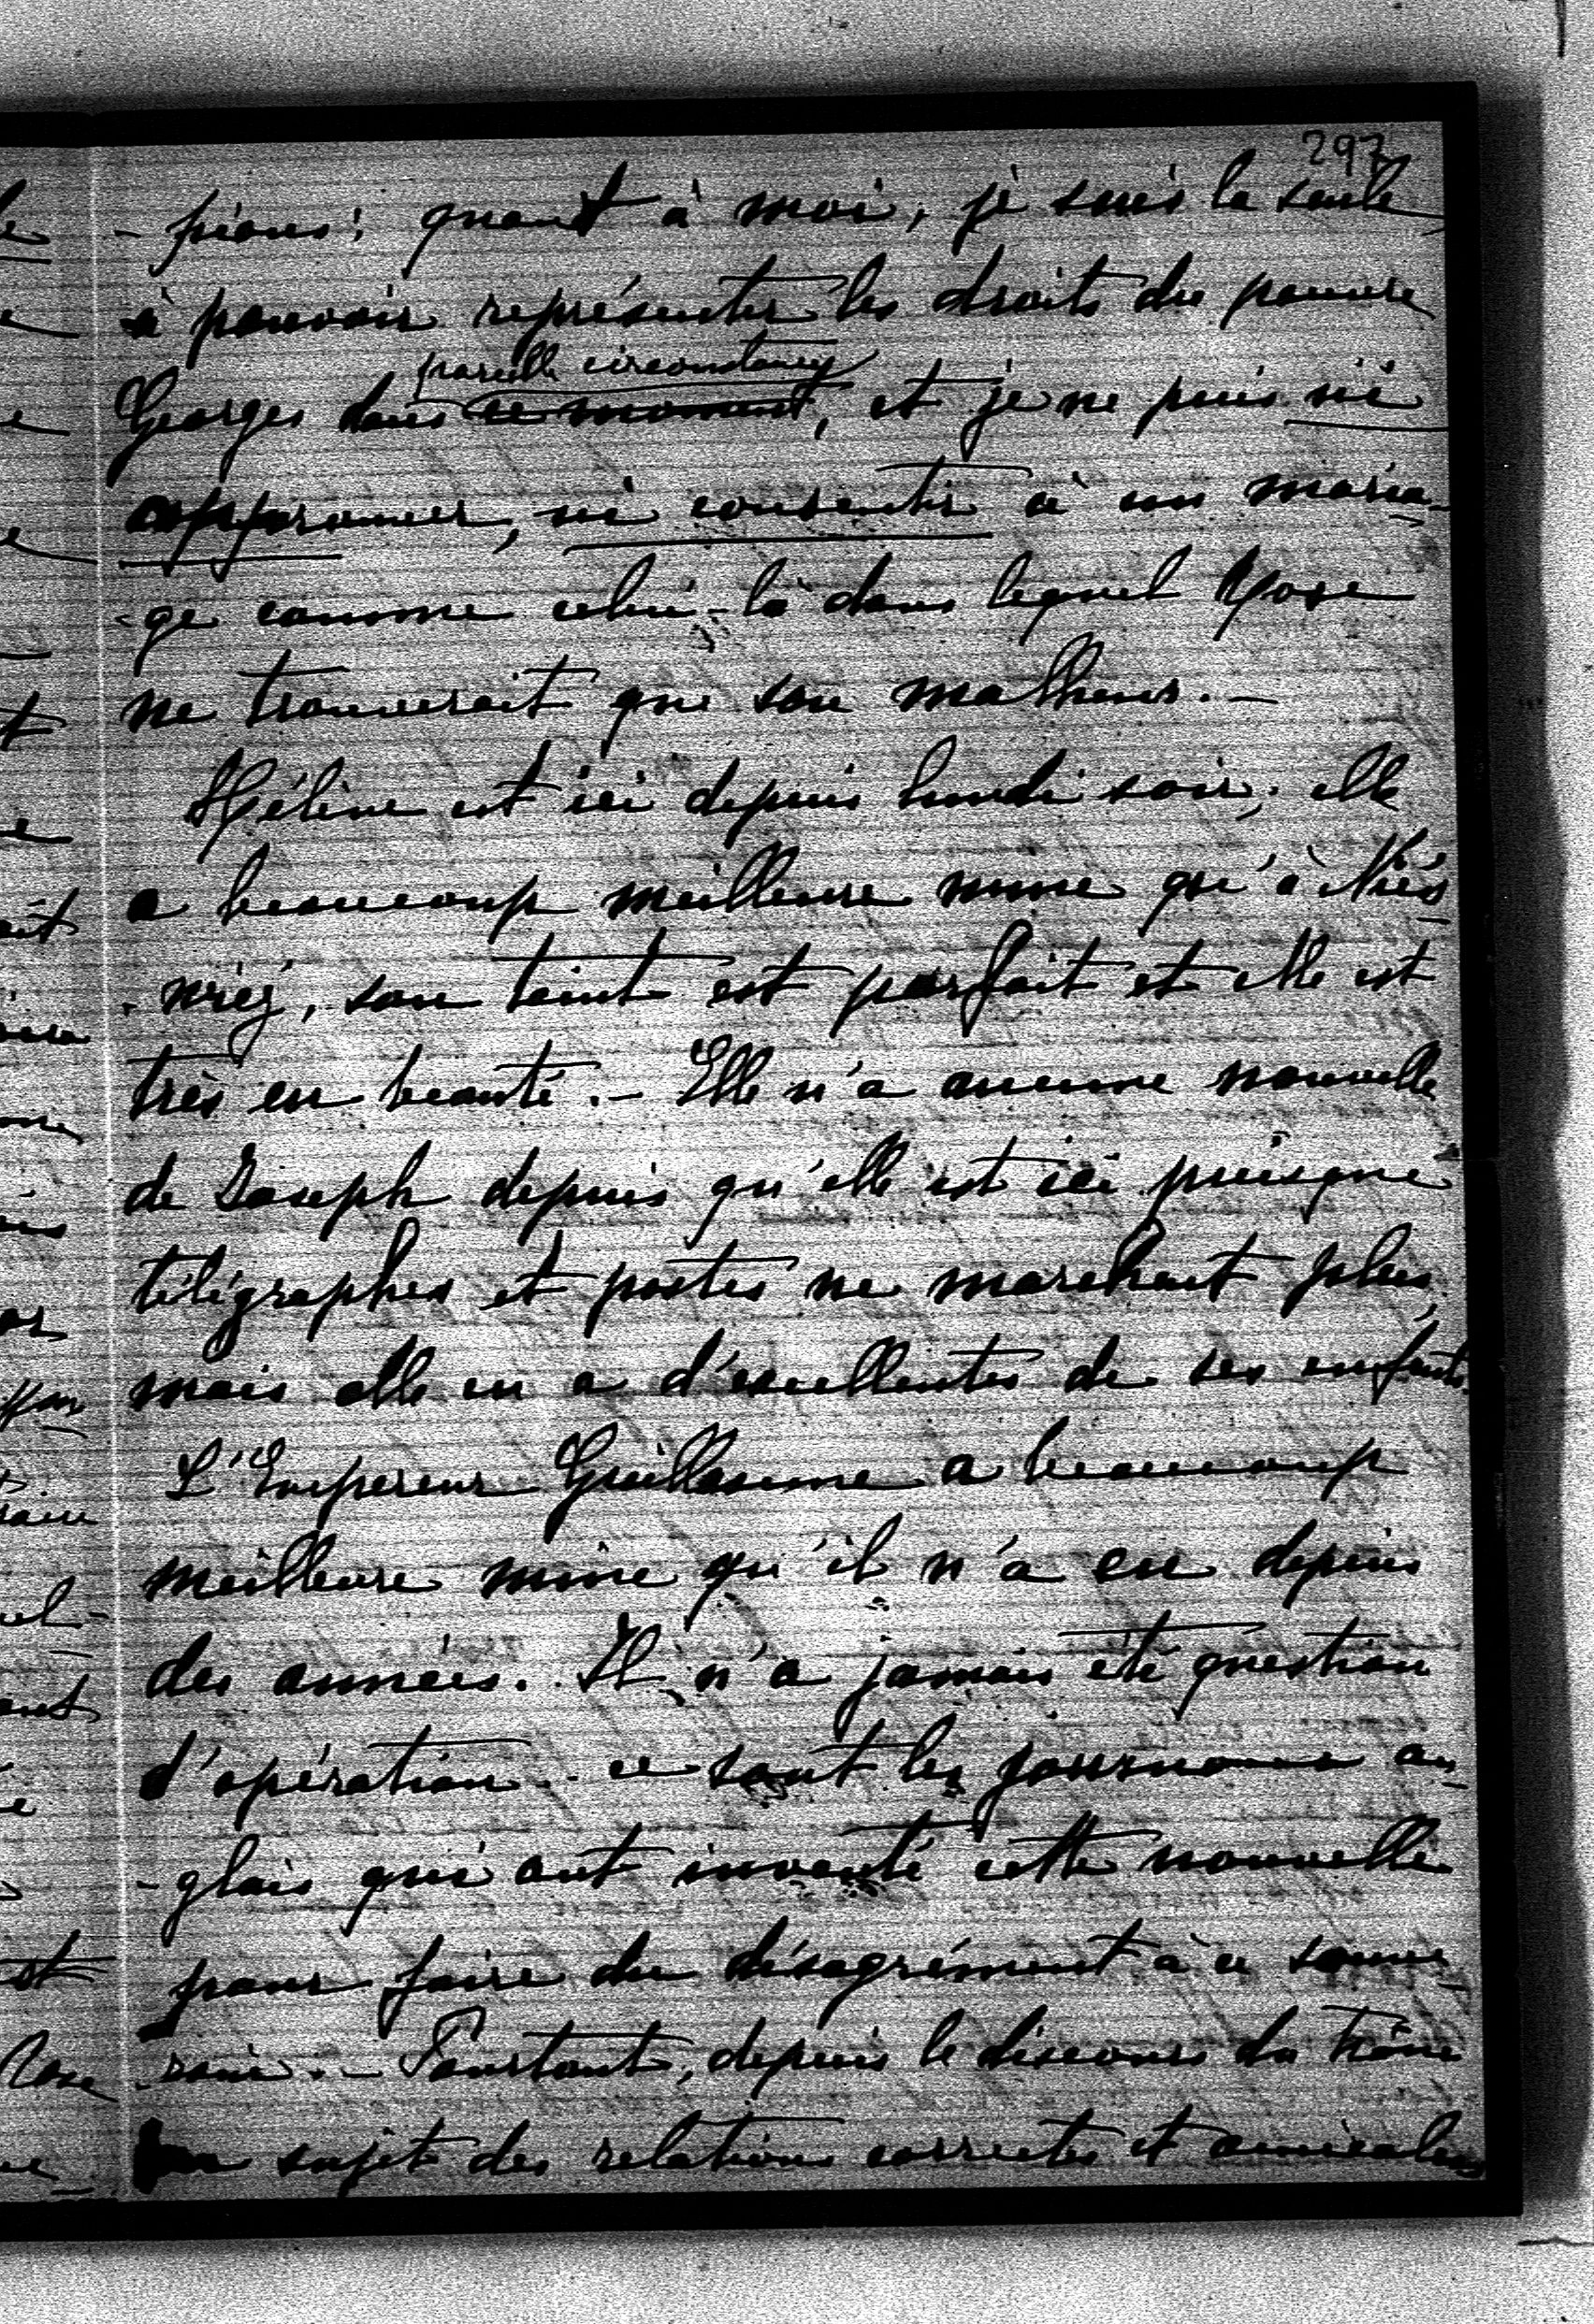 297
- pions; quant à moi, je suis la seule
à pouvoir représenter les droits du pauvre
pareille circonstance
Georges dans ce moment, et je ne puis ni
approuver, ni consentir à un maria-
-ge comme celui-là dans lequel Rose
ne trouverait que son malheur. -
Hélène est ici depuis lundi soir; elle
a beaucoup meilleure mine qu'à
son teint est parfait et elle est
très en beauté. - Elle n'a aucune nouvelle
de Joseph depuis qu'elle est ici puisque
télégraphes et postes ne marchent plus,
mais elle en a d'excellentes de ses enfants.
L'Empereur Guillaume a beaucoup
meilleure mine qu'il n'a eu depuis
des années. Il n'a jamais été question
d'opération.. ce sont les journaux an-
-glais qui ont inventé cette nouvelle
pour faire du désagrément à ce souve-
-rain. - Pourtant, depuis le discours du Trône
au sujet des relations correctes et amicales